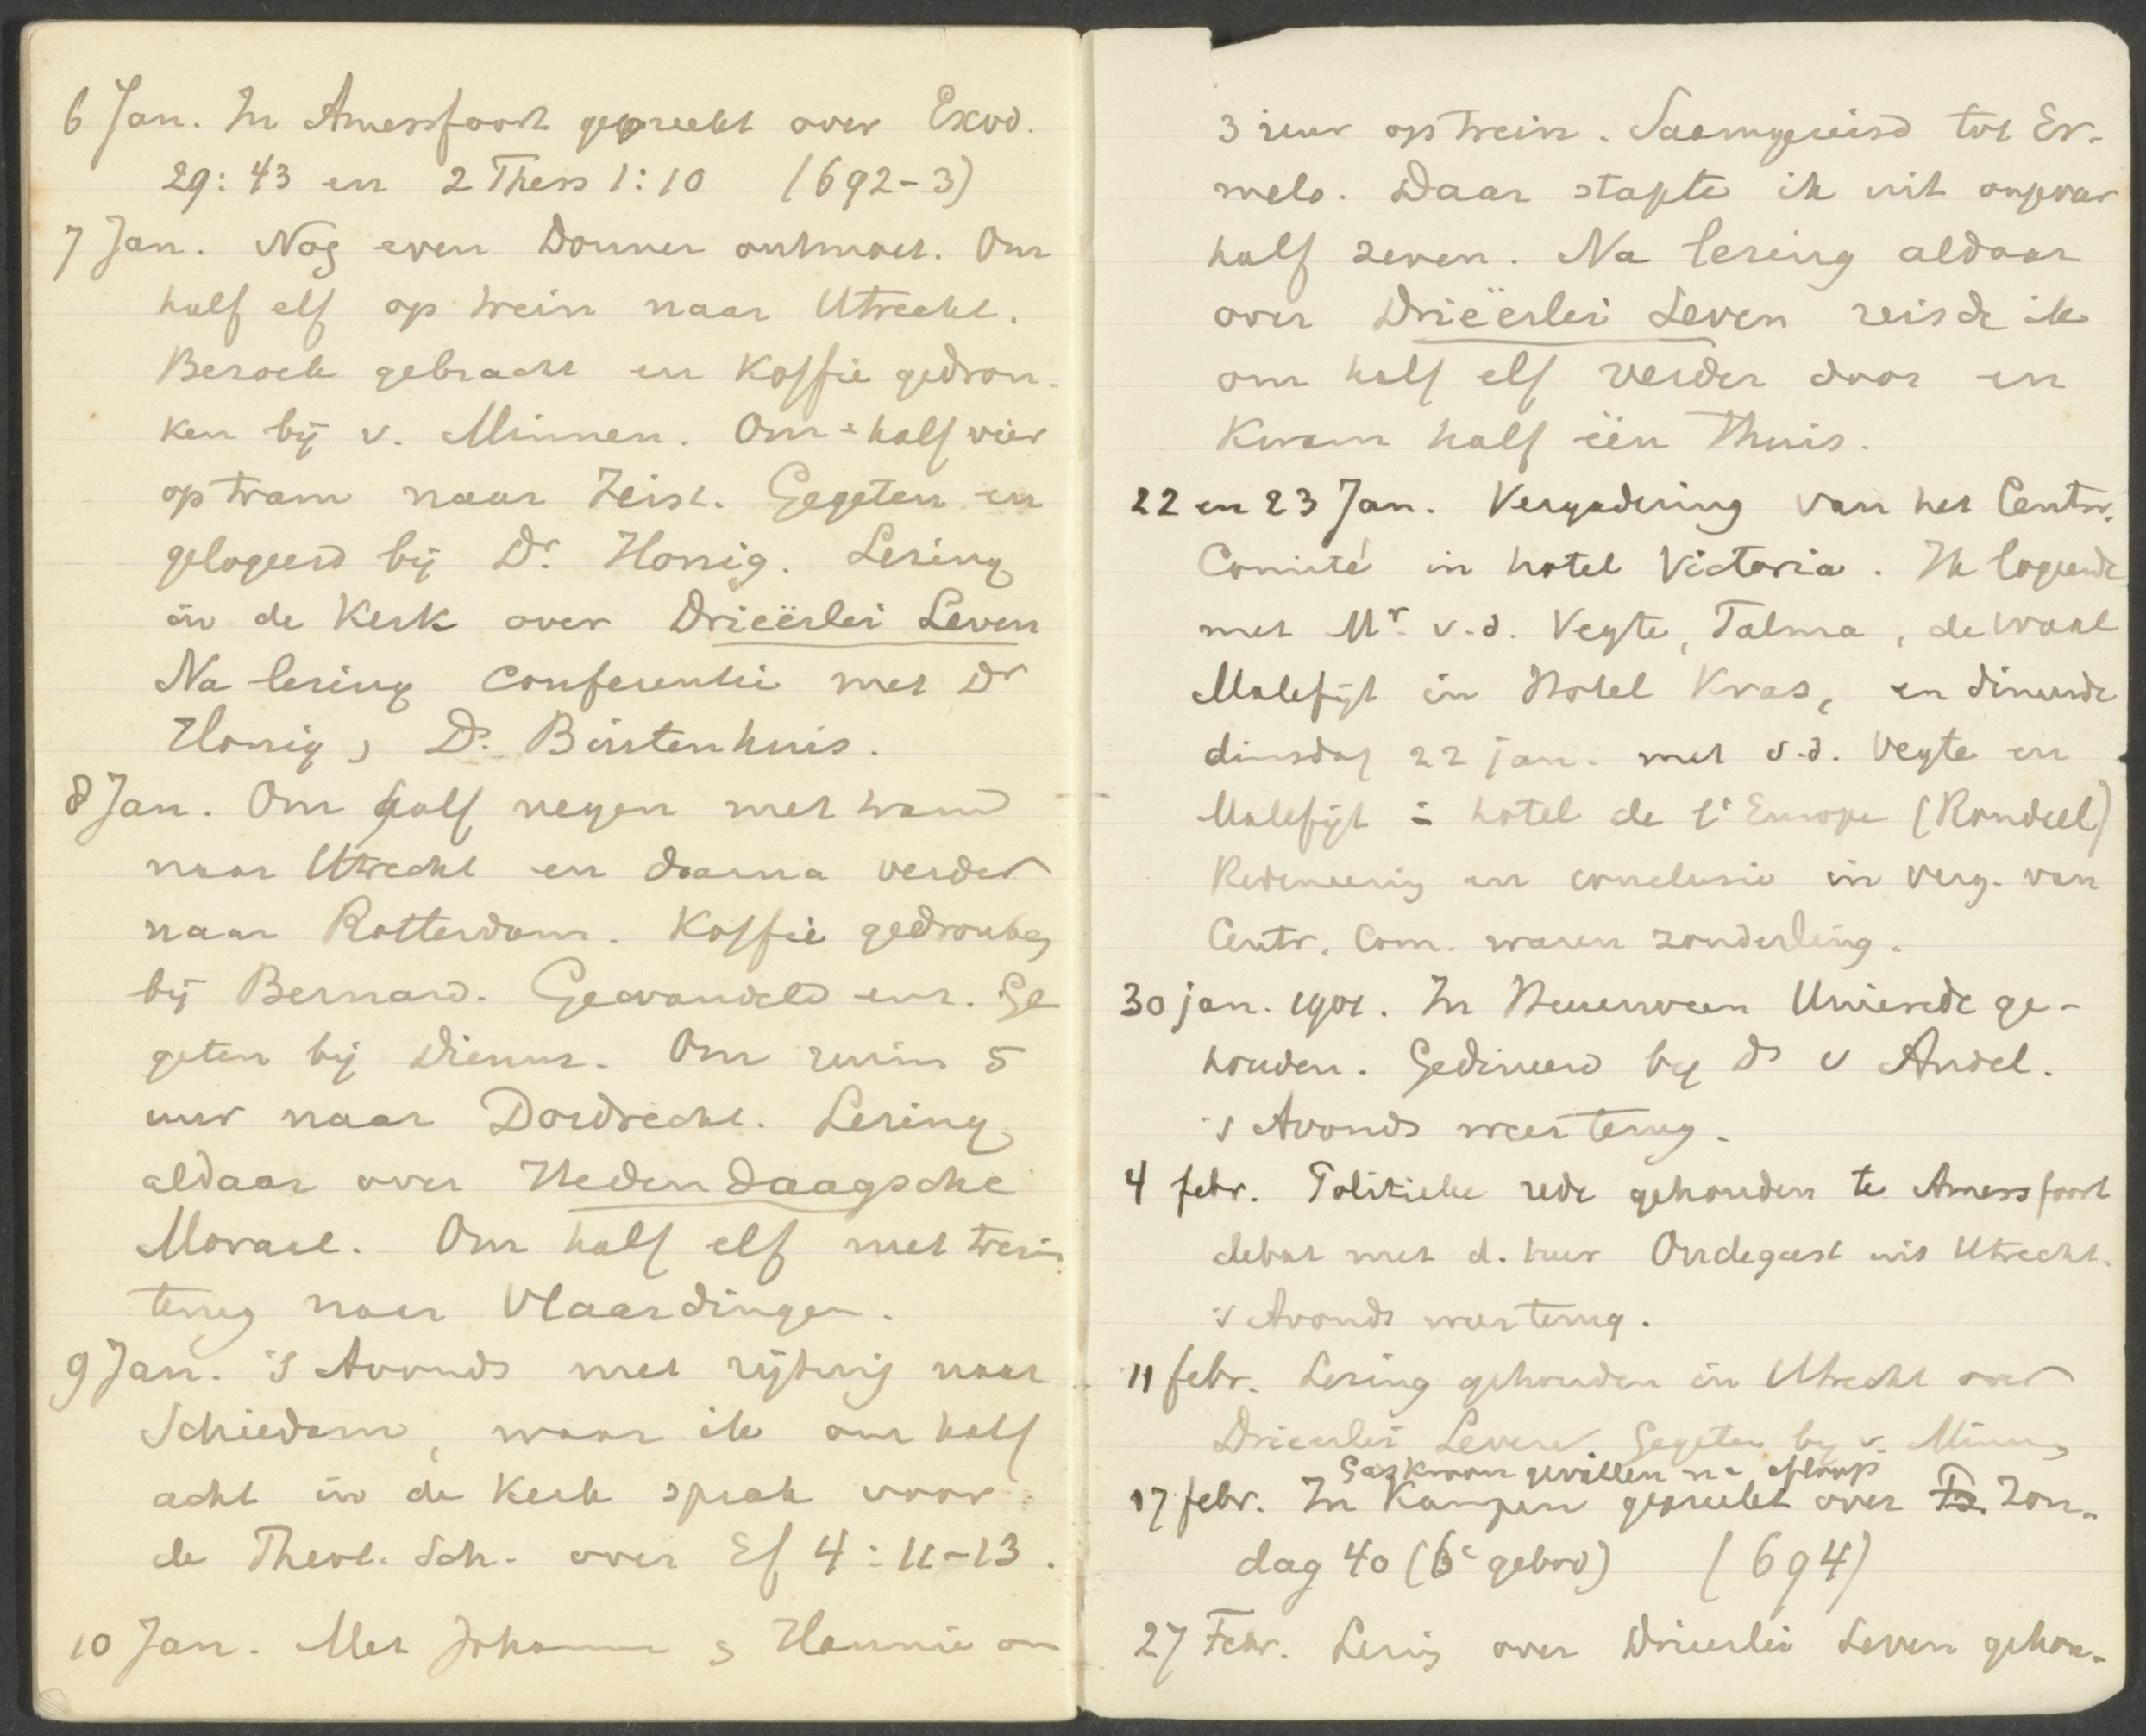 6 Jan. In Amersfoort gepreekt over Exod.
29:43 en 2 Thess 1:10 (692-3)
7 Jan. Nog even Donner ontmoet. Om
half elf op trein naar Utrecht.
Bezoek gebracht en Koffie gedron-
ken bij v. Minnen. Om half vier
op tram naar Zeist. Gegeten en
gelogeerd bij Dr. Honig. Lezing
in de Kerk over Drieërlei Leven
Na lezing conferentie met Dr
Honig, Ds. Buitenhuis.
8 Jan. Om half negen met tram
naar Utrecht en daarna verder
naar Rotterdam. Koffie gedronken
bij Bernard. Gewandeld enz. Ge
geten bij Dienus. Om ruim 5
uur naar Dordrecht. Lezing
aldaar over Hedendaagsche
Moraal. Om half elf met trein
terug naar Vlaardingen.
9 Jan. 's Avonds met rijtuig naar
Schiedam, waar ik om half
acht in de Kerk sprak voor
de Theol. Sch. over Ef 4:11-13.
10 Jan. Met Johanna & Hannie om
3 uur op trein. Saamgereisd tot Er-
melo. Daar stapte ik uit ongeveer
half zeven. Na lezing aldaar
over Drieërlei Leven reisde ik
om half elf verder door en
kwam half één thuis.
22 en 23 Jan. Vergadering van het Centr.
Comité in hotel Victoria. Ik logeerde
met Mr. v.d. Vegte, Talma, de Waal
Malefijt in Hotel Kras, en dineerde
dinsdag 22 jan. met v.d. Vegte en
Malefijt in hotel de l'Europe (Rondeel)
Redeneering en conclusie in verg. van
Centr. Com. waren zonderling.
30 jan. 1901. In Heerenveen Unierede ge-
houden. Gedineerd bij ds v Andel.
's Avonds weer terug.
4 febr. Politieke rede gehouden te Amersfoort
debat met d. heer Oudegeest uit Utrecht.
's Avonds weer terug.
11 febr. Lezing gehouden in Utrecht over
Drieerlei Leven. Gegeten bij v. Minnen
Gaskroon gevallen na afloop
17 febr. In Kampen gepreekt over Zon-
dag 40 (6e gebod) (694)
27 Febr. Lezing over Drieerlei Leven gehou-